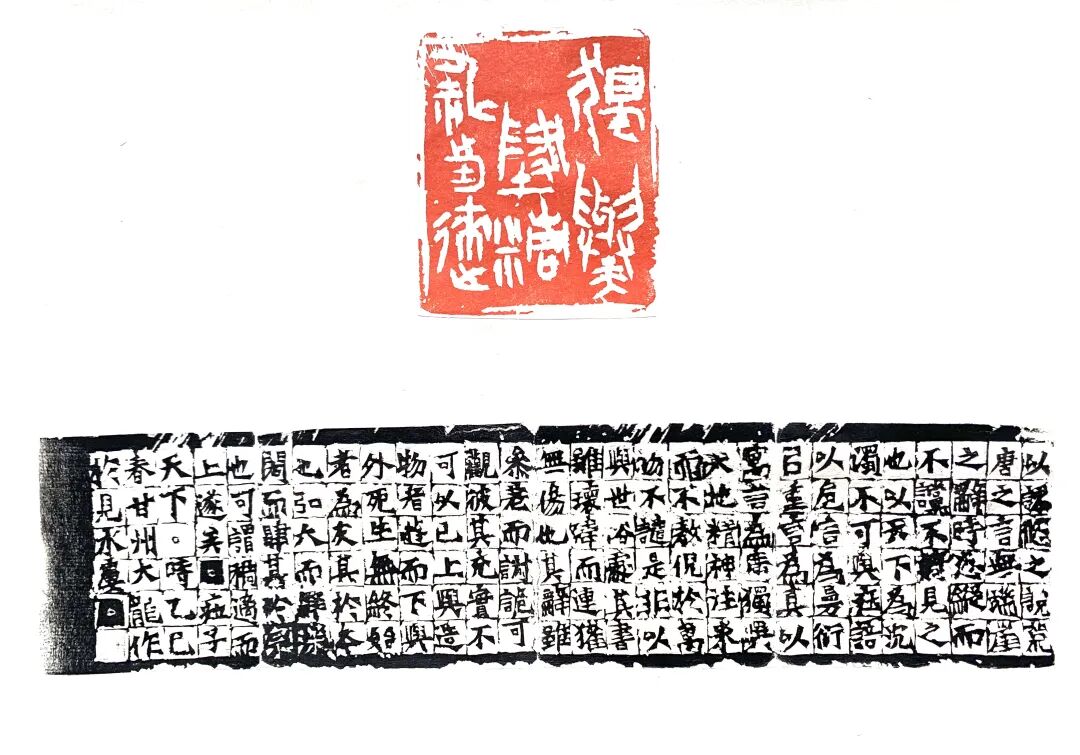 以謬悠之說荒
唐之言無端崖
之辭時恣縱而
不儻不觭見之
也以天下為沉
濁不可與莊語
以卮言為曼衍
㠯重言為真以
寓言為廣獨與
天地精神往來
而不敖倪於萬
物不譴是非以
與世俗處其書
雖瓌瑋而連犿
無傷也其辭雖
參差而諔詭可
觀彼其充實不
可以已上與造
物者遊而下與
外死生無終始
者為友其於本
也弘大而辟深
閎而肆其於宗
也可謂稠適而
上遂矣莊子
天下。時乙巳
春甘州大龍作
於見水